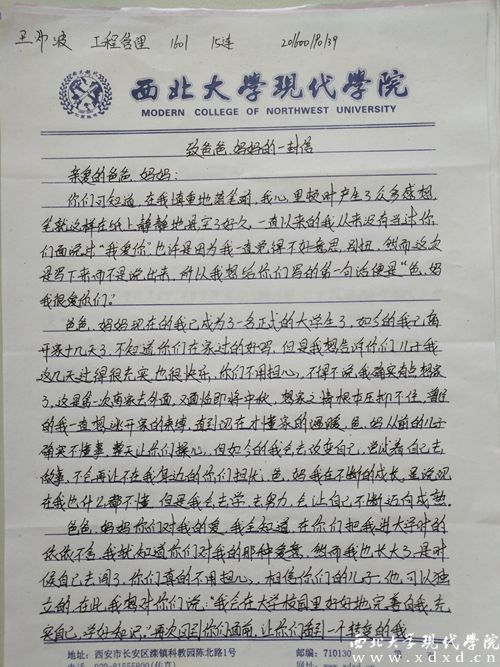 工程管理 1601 15连 201600190139
西北大学现代学院
MODERN COLLEGE OF NORTHWEST UNIVERSITY
致爸爸、妈妈的一封信
亲爱的爸爸、妈妈：
你们可知道，在我慎重地落笔前，我心里顿时产生了众多感想，
笔就这样在纸上静静地悬空了好久，一直以来的我从来没有当过你
们面说过"我爱你"也许是因为我一直觉得不好意思，别扭，然而这次
是写下来而不是说出来，所以我想给你们写的第一句话便是"爸、妈
我很爱你们。"
爸爸、妈妈现在的我已成为了一名正式的大学生了，如今的我已离
开家十几天了，不知道你们在家过的好吗，但是我想告诉你们儿子我
这几天过得很充实，也很快乐，你们不用担心，不得不说我确实有点想家
了，这是第一次离家去外面，又面临即将中秋，想家之情根本压抑不住，曾经
的我一直想逃开家的束缚，直到现在才懂家的温暖，爸、妈从前的儿子
确实不懂事，整天让你们操心，但如今的我会去改变自己，尝试着自己去
做事，不会再让不在我身边的你们担忧，爸、妈我在不断的成长，虽说现
在我也什么都不懂，但是我会去学，去努力，会让自己不断迈向成熟。
爸爸、妈妈你们对我的爱，我全知道，在你们把我送进大学时的
依依不舍，我就知道你们对我的那种爱意，然而我也长大了，是时
候自己去闯了，你们真的不用担心，相信你们的儿子，他可以独
立的，在此，我想对你们说："我会在大学校园里好好地完善自我，充
实自己，学好知识。"再次回到你们面前，让你们看到一个转变的我
地址：西安市长安区滦镇科教园陈北路1号
邮编：710105
电话：029-81555800(传真)
西北大学现代学院
www.xdxd.cn